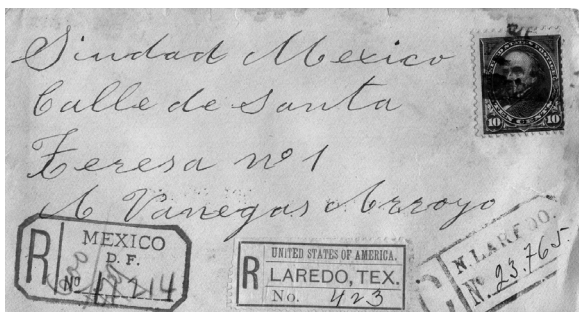 Siudad Mexico
Calle de Santa
Teresa nº 1
A Vanegas Arroyo
10 10
R MEXICO
D. F.
Nº
R UNITED STATES OF AMERICA.
LAREDO, TEX.
No. 423
N. LAREDO.
Nº 23.765